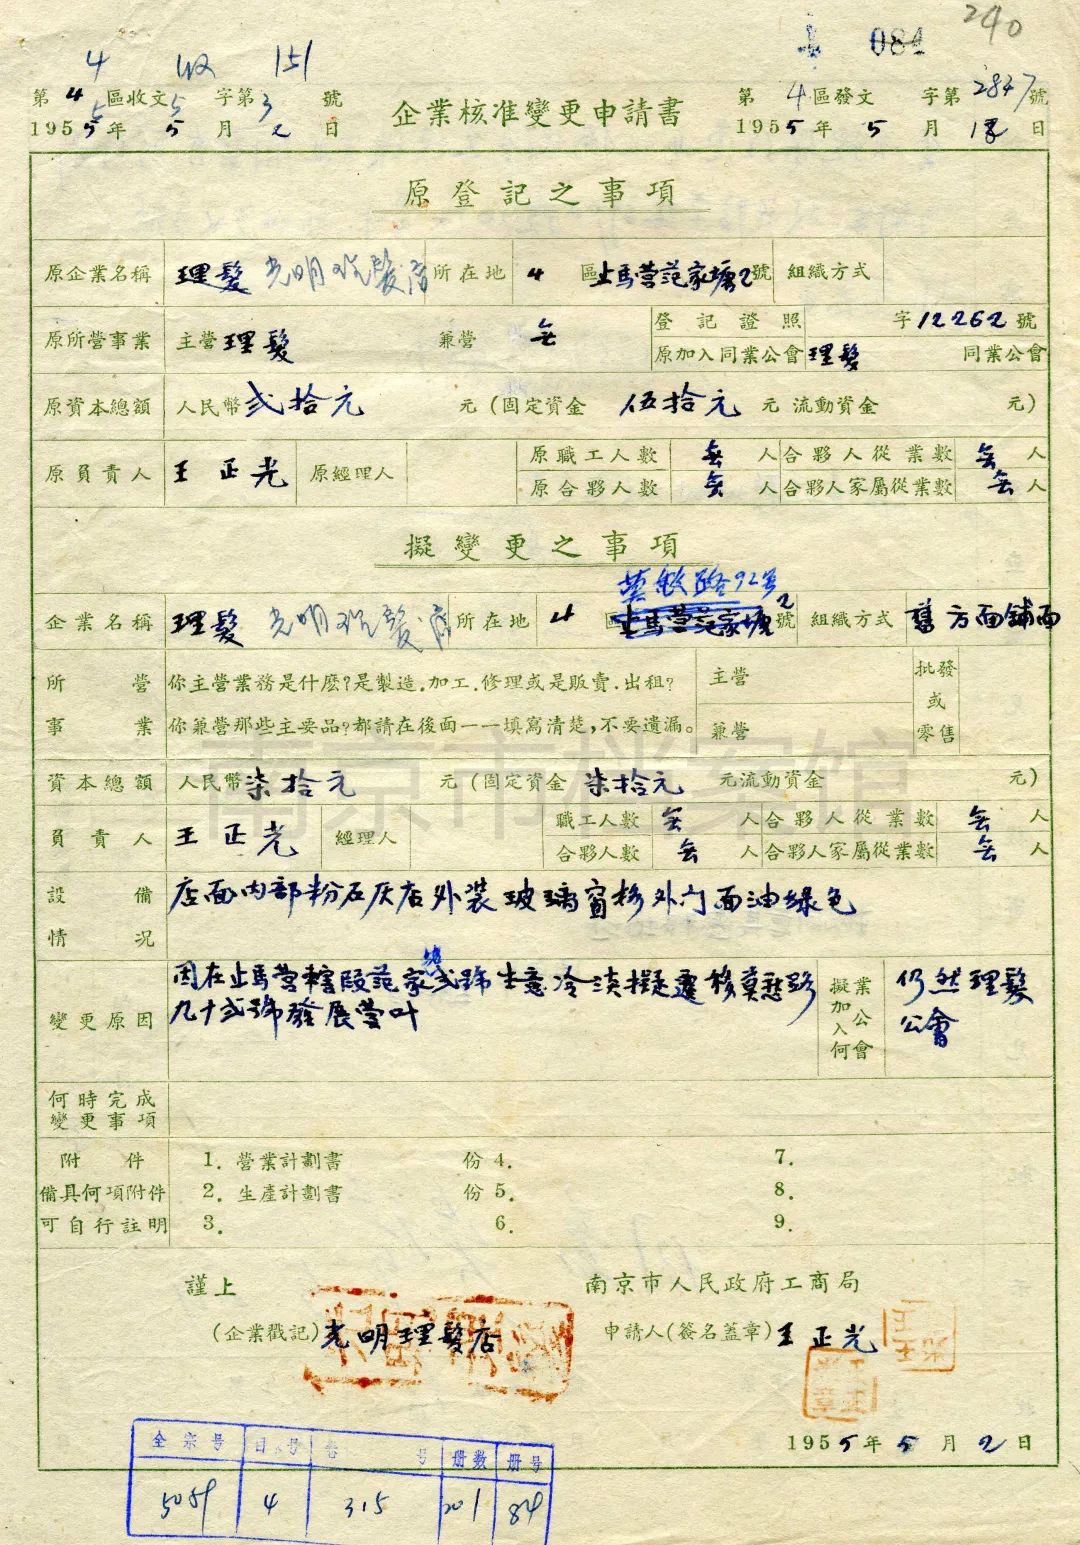 240
084
4 收 151
第4區收文 5 字第 3 號
1955年 5 月 2 日
企業核准變更申請書
第 4 區發文 字第2847號
1955年 5 月 18 日
原登記之事項
原企業名稱 理髮 光明理髮店 所在地 4 區止馬营范家塘2號 組織方式
原所營事業 主營理髮 兼營 無 登記證照 字12262號
原加入同業公會 理髮 同業公會
原資本總額 人民幣弍拾元 元(固定資金 伍拾元 元流動資金 元)
原負責人 王正光 原經理人 原職工人數 無 人 合夥人從業數 無 人
原合夥人數 無 人 合夥人家屬從業數 無 人
擬變更之事項
莫愁路92号
企業名稱 理髮 光明理髮店 所在地 4 區止馬营范家塘2號 組織方式 舊方面鋪面
所營 你主營業務是什麽?是製造.加工.修理或是販賣.出租? 主營 批發
或
事業 你兼營那些主要品?都請在後面一一填寫清楚,不要遺漏。 兼營 零售
南京市档案館
資本總額 人民幣柒拾元 元(固定資金 柒拾元 元流動資金 元)
負責人 王正光 經理人 職工人數 無 人 合夥人從業數 無 人
合夥人數 無 人 合夥人家屬從業數 無 人
設備 店面內部粉石灰店外装玻璃窗格外门面油綠色
情況
變更原因 因在止馬营轄段范家塘弍號生意冷淡擬遷移莫愁路
九十弍號發展营叶
擬加入何業公會 仍然理髮
公會
何時完成
變更事項
附件 1. 營業計劃書 份 4. 7.
備具何項附件 2. 生產計劃書 份 5. 8.
可自行註明 3. 6. 9.
謹上 南京市人民政府工商局
(企業戳記)光明理髮店 申請人(簽名蓋章)王正光
1955年 5 月 2 日
全宗号 目录号 卷号 册数 册号
5059 4 315 201 84